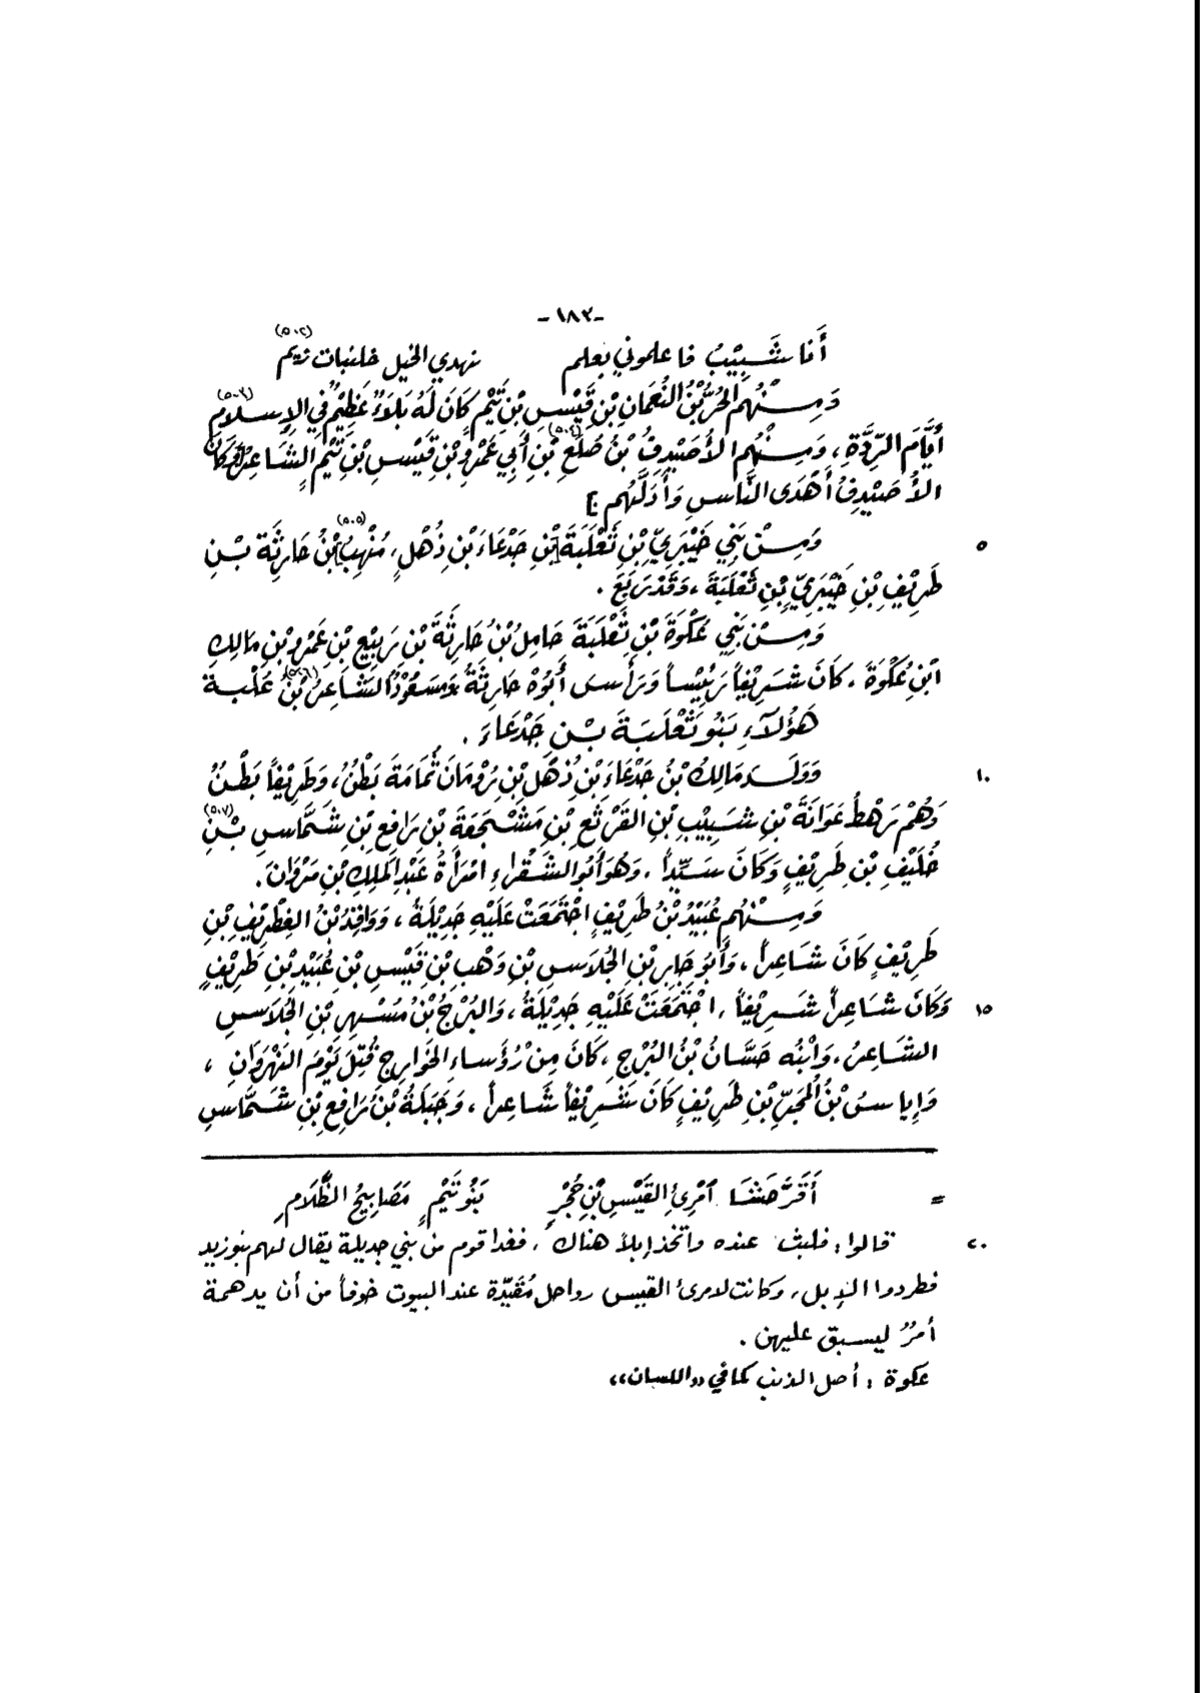 -١٨٣-
أَنَا شَبِيْبٌ فاعلموني بعلم نهدي الخيل خلنبات زيم (٥٠٢)
وَمِنْهُم الحُرُّ بْنُ النُعْمَانِ بْنِ قَيْسِ بْنِ تَيْمٍ كَانَ لَهُ بَلَاءٌ عَظِيْمٌ فِي الإِسلامِ (٥٠٣)
أَيَّامَ الرِّدَّةِ، وَمِنْهُم الأُصَيْدِفُ بْنُ صُلَعِ (٥٠٤) بْنِ أَبِي عَمْرِو بْنِ قَيْسِ بْنِ تَيْمٍ الشَاعِرُ، وَكَانَ
الأُصَيْدِفُ أَهْدَى النَّاسِ وَأَدَلَّهُم.]
٥ وَمِنْ بَنِي خَيْبَرِيِّ بْنِ ثَعْلَبَةَ [بْنِ جَدْعَاءَ بْنِ ذُهْلٍ، مُنْهِبُ (٥٠٥)] بْنُ حَارِثَةَ بْنِ
طَرِيْفِ بْنِ خَيْبَرِيِّ بْنِ ثَعْلَبَةَ، وَقَدْ رَبَعَ.
وَمِنْ بَنِي عُكْوَةَ بْنِ ثَعْلَبَةَ حَامِلُ بْنُ حَارِثَةَ بْنِ رَبِيْعِ بْنِ عَمْرِو بْنِ مَالِكِ
ابْنِ عُكْوَةَ، كَانَ شَرِيْفاً رَئِيْساً وَرَأَسَ أَبُوْهُ حَارِثَةُ وَمَسْعُوْدٌ الشَاعِرُ (٥٠٦) بْنُ عُلْبة
هَؤُلَآءِ بَنُو ثَعْلَبَةَ بْنِ جَدْعَاءَ.
١٠ وَوَلَدَ مَالِكُ بْنُ جَدْعَاءَ بْنِ ذُهْلِ بْنِ رُوْمَانَ ثُمَامَةَ بَطْنٌ، وَطَرِيْفاً بَطْنٌ
وَهُمْ رَهْطُ عَوَانَةَ بْنِ شَبِيْبِ بْنِ القَرْثَعِ بْنِ مَشْجَعَةَ بْنِ رَافِعِ بْنِ شَمَّاسِ بْنِ (٥٠٧)
خُلَيْفِ بْنِ طَرِيْفٍ وَكَانَ سَيِّداً، وَهُوَ أَبُو الشَقْرَاءِ امْرَأَةُ عَبْدِ المَلِكِ بْنِ مَرْوَانَ.
وَمِنْهُم عُبَيْدُ بْنُ طَرِيْفٍ اجْتَمَعَتْ عَلَيْهِ جَدِيْلَةُ، وَوَافِدُ بْنُ الغِطْرِيْفِ بْنِ
طَرِيْفٍ كَانَ شَاعِراً، وَأَبُو جَابِرِ بْنِ الجُلَاسِ بْنِ وَهْبِ بْنِ قَيْسِ بْنِ عُبَيْدِ بْنِ طَرِيْفٍ
١٥ وَكَانَ شَاعِراً شَرِيْفاً، اجْتَمَعَتْ عَلَيْهِ جَدِيْلَةُ، وَالبُرْجُ بْنُ مُسْهِرِ بْنِ الجُلَاسِ
الشَاعِرُ، وَابْنُه حَسَّانُ بْنُ البُرْجِ، كَانَ مِنْ رُؤَسَاءِ الخَوَارِجِ قُتِلَ يَوْمَ النَهْرَوَانِ،
وَإِيَاسُ بْنُ المُجَبِّرِ بْنِ طَرِيْفٍ كَانَ شَرِيْفاً شَاعِراً، وَجَبَلَةُ بْنُ رَافِعِ بْنِ شَمَّاسِ
= أَقَرَّ حَشَا امْرِئِ القَيْسِ بْنِ حُجْرٍ بَنُو تَيْمٍ مَصَابِيحُ الظَّلَامِ
٢٠ قالوا: فلبث عنده واتخذ إبلاً هناك، فغدا قوم من بني جديلة يقال لهم بنو زيد
فطردوا الإبل، وكانت لامرئ القيس رواحل مُقَيَّدة عند البيوت خوفاً من أن يدهمه
أمرٌ ليسبق عليهن.
عكوة: أصل الذنب كما في «اللسان»